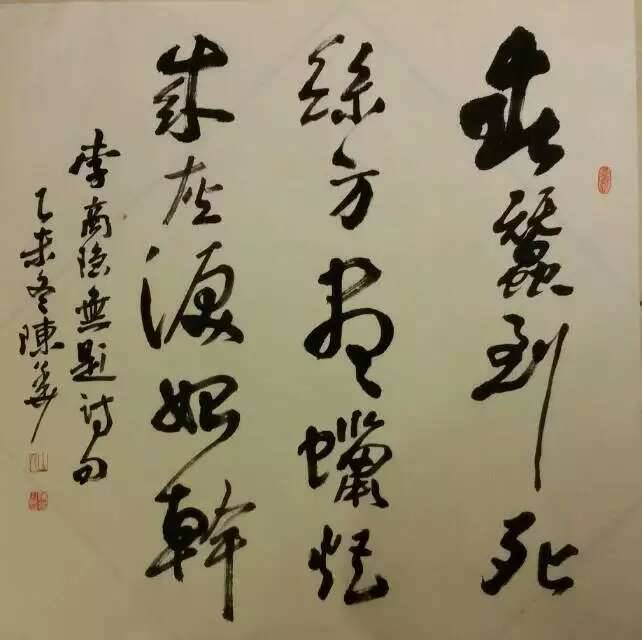 春蠶到死
絲方盡蠟炬
成灰淚始幹
李商隐無题诗句
乙未冬陳